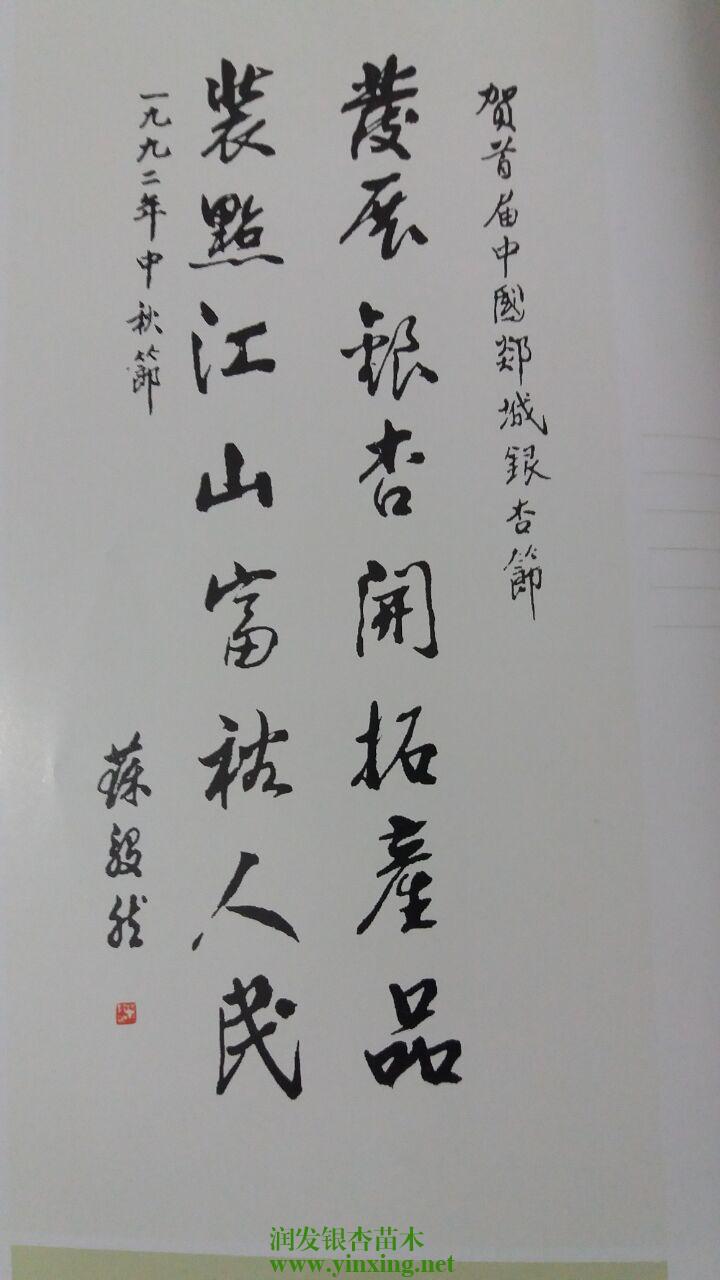 賀首届中國郯城銀杏節
發展銀杏開拓產品
裝點江山富裕人民
一九九二年中秋節
蘇毅然
润发银杏苗木
www.yinxing.net